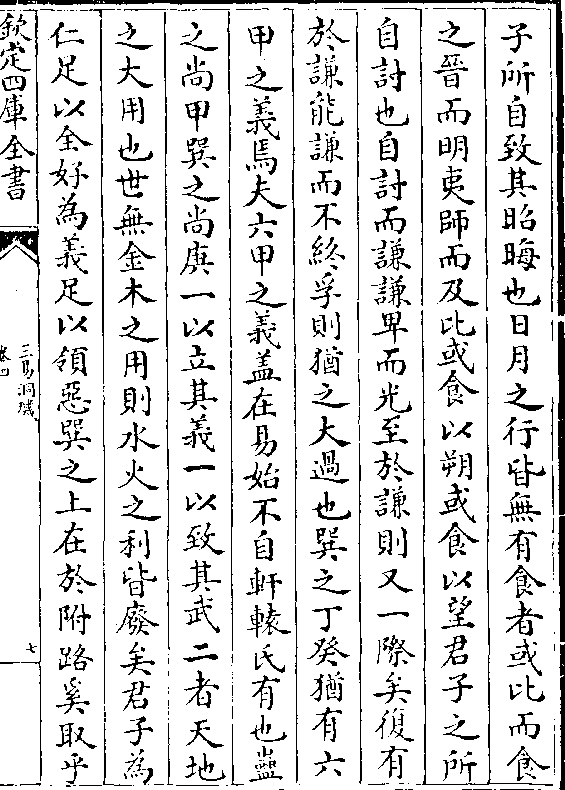 子所自致其昭晦也日月之行皆無有食者或比而食
之晉而明夷師而及比或食以朔或食以望君子之所
自討也自討而謙謙卑而光至於謙則又一際矣復有
於謙能謙而不終孚則猶之大過也巽之丁癸猶有六
甲之義焉夫六甲之義蓋在易始不自軒轅氏有也蠱
之尚甲巽之尚庚一以立其義一以致其武二者天地
之大用也世無金木之用則水火之利皆廢矣君子為
仁足以全好為義足以領惡巽之上在於附路奚取乎
欽定四庫全書
三易洞璣
卷四
七